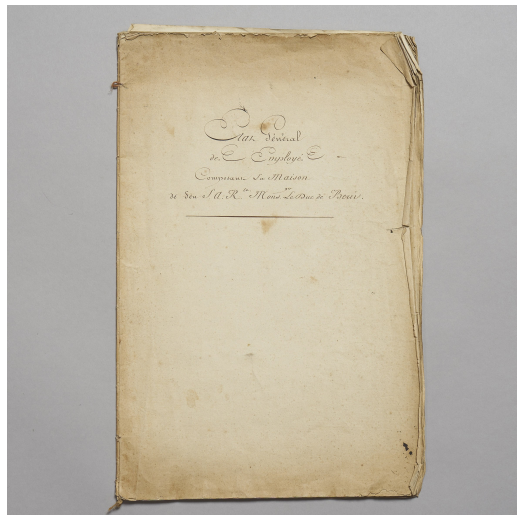 Etat Général
des Employés
Composant la Maison
de feu S. A. R.le Mons.gr Le Duc de Berri.